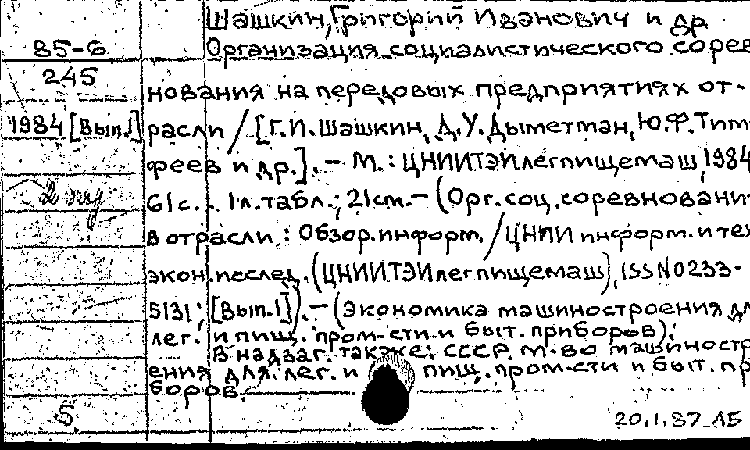 Шашкин, Григорий Иванович и др
85-6 Организация социалистического сорев
245
нования на передовых предприятиях от-
1984 [Вып.1] расли / [Г.И. Шашкин, Д.У. Дыметман, Ю.Ф. Тим
феев и др.]. — М. : ЦНИИТЭИлегпищемаш, 1984
61 с., 1 л. табл.; 21 см. — (Орг. соц. соревновани
в отрасли : Обзор. информ. / ЦНИИ информ. и тех
экон. исслед. (ЦНИИТЭИлегпищемаш), ISSN 0233-
5131; [Вып.1]). — (Экономика машиностроения дл
лег. и пищ. пром-сти и быт. приборов).
В надзаг. также: СССР. М-во машиностр
ения для лег. и пищ. пром-сти и быт. пр
боров.
5 20.1.87 АБ